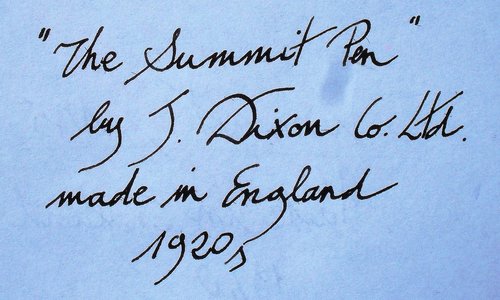 "The Summit Pen"
by J. Dixon Co. Ltd.
made in England
1920s